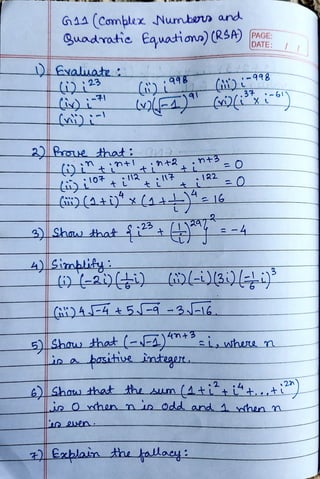 G11 (Complex Numbers and
Quadratic Equations) (RSA)
PAGE:
DATE: / /
1) Evaluate :
(i) i²³ (ii) i⁹⁹⁸ (iii) i⁻⁹⁹⁸
(iv) i⁻⁷¹ (v) (√-1)⁹¹ (vi) (i³⁷ × i⁻⁶¹)
(vii) i⁻¹
2) Prove that :
(i) iⁿ + iⁿ⁺¹ + iⁿ⁺² + iⁿ⁺³ = 0
(ii) i¹⁰⁷ + i¹¹² + i¹¹⁷ + i¹²² = 0
(iii) (1+i)⁴ × (1 + 1/i)⁴ = 16
3) Show that {i²³ + (1/i)²⁹}² = -4
4) Simplify :
(i) (-2i)(1/6 i) (ii) (-i)(3i)(-1/6 i)³
(iii) 4√-4 + 5√-9 - 3√-16.
5) Show that (-√-1)⁴ⁿ⁺³ = i, where n
is a positive integer.
6) Show that the sum (1 + i² + i⁴ + ... + i²ⁿ)
is 0 when n is odd and 1 when n
is even.
7) Explain the fallacy :